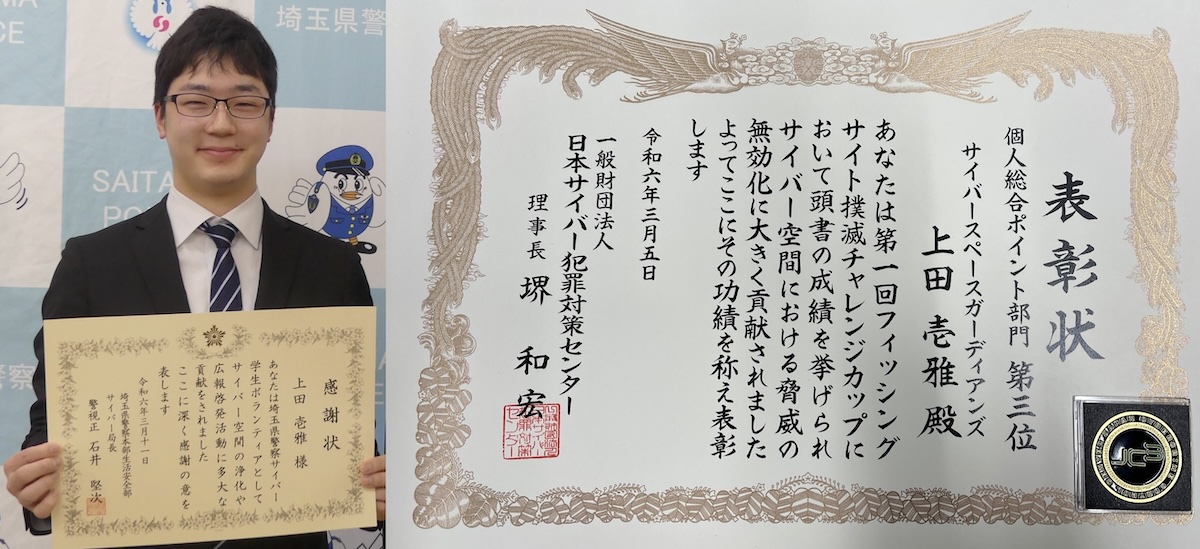 埼玉県警察
SAITA
感謝状
上田 壱雅 様
あなたは埼玉県警察サイバー
学生ボランティアとして
サイバー空間の浄化や
広報啓発活動に多大な
貢献をされました
ここに深く感謝の意を
表します
令和六年三月十一日
埼玉県警察本部生活安全部
サイバー局長
警視正 石井 堅次
表彰状
個人総合ポイント部門 第三位
サイバースペースガーディアンズ
上田 壱雅 殿
あなたは第一回フィッシング
サイト撲滅チャレンジカップに
おいて頭書の成績を挙げられ
サイバー空間における脅威の
無効化に大きく貢献されました
よってここにその功績を称え表彰
します
令和六年三月五日
一般財団法人
日本サイバー犯罪対策センター
理事長 堺 和宏
JC3